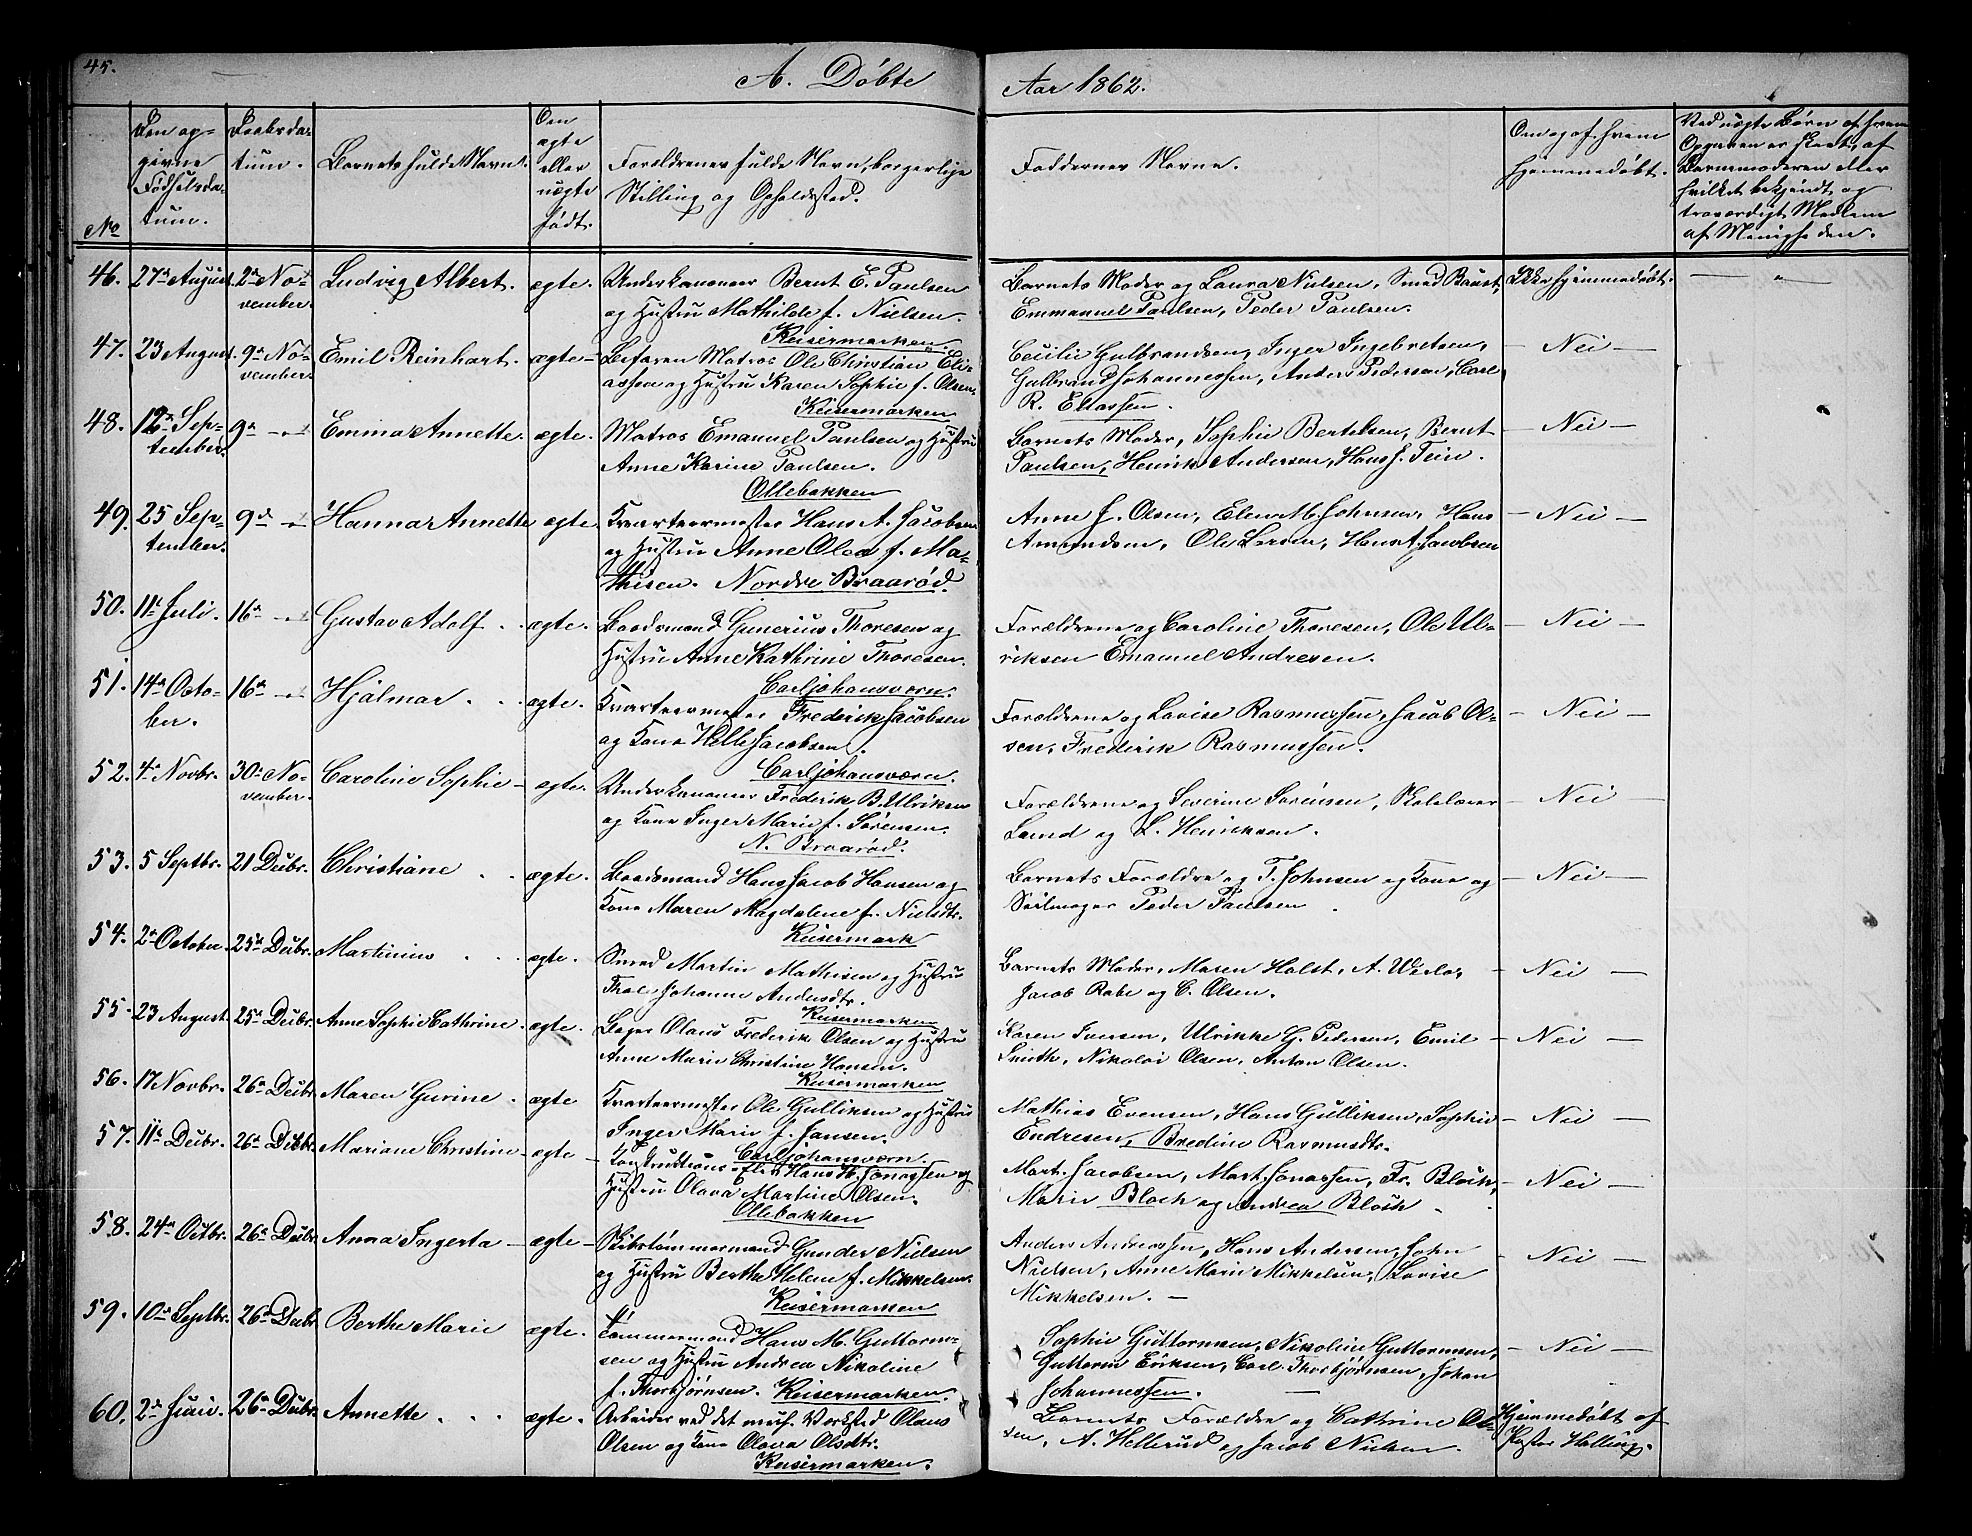 45.
A. Döbte
Aar 1862.
No
Den op=
givne
Födselsda-
tum.
Daabsda-
tum.
Barnets fulde Navn.
Om
ægte
eller
uægte
födt.
Forældrenes fulde Navn, borgerlige
Stilling og Opholdssted.
Faddernes Navne.
Om og af hvem
hjemmedöbt.
Ved uægte Börn af hvem
Opgaven er skeet, af
Barnemoderen eller
hvilket bekjendt og
troværdigt Medlem
af Menigheden.
46. 27de August. 2den No-
vember.
Ludvig Albert. ægte.
Underkanoneer Bernt E. Paulsen
og Hustru Mathilde f. Nielsen.
Keisermarken.
Barnets Moder og Laura Nielsen, Smed Baust,
Emmanuel Paulsen, Peder Paulsen.
Ikke hjemmedöbt. — "
47. 23 August. 9de No-
vember.
Emil Reinhart. ægte—
Befaren Matros Ole Christian Eli-
assen og Hustru Karen Sophie f. Olsen.
Keisermarken
Cecilie Gulbrandsen, Inger Ingebretsen,
Gulbrand Johannessen, Anders Pedersen, Carl
R. Eliassen.
— Nei —
48. 12te Sep-
tember.
9de — " —
Emma Annette. ægte.
Matros Emanuel Paulsen og Hustru
Anne Karine Paulsen.
Ollebakken
Barnets Moder, Sophie Bertelsen, Bernt
Paulsen, Henrik Andersen, Hans J. Tein.
— Nei —
49. 25 Sep-
tember.
9de — " —
Hanna Annette ægte.
Kvarteermester Hans A. Jacobsen
og Hustru Anne Olea f. Ma-
thisen. Nordre Braaröd.
Anne J. Olsen, Elen M. Johnsen, Hans
Amundsen, Ole Larsen, Hans A. Jacobsen
— Nei —
50. 11te Juli. 16de — " —
Gustav Adolf . . ægte.
Baadsmand Gunerius Thoresen og
Hustru Anne Kathrine Thoresen.
Carljohansværn.
Forældrene og Caroline Thoresen, Ole Ul-
riksen Emanuel Andresen.
— Nei —
51. 14de Octo-
ber.
16de — " —
Hjalmar . . ægte.
Kvarteermester Frederik Jacobsen
og Kone Helle Jacobsen.
Carljohansværn.
Forældrene og Lovise Rasmussen, Jacob Ol-
sen, Frederik Rasmussen.
— Nei —
52. 4de Novbr. 30te No-
vember.
Caroline Sophie — ægte.
Underkanoneer Frederik B. Ulriksen
og Kone Inger Marie f. Sörensen.
N. Braaröd.
Forældrene og Severine Sörensen, Skolelærer
Lund og L. Henriksen.
— Nei —
53. 5 Septbr. 21 Decbr.
Christiane . . ægte.
Baadsmand Hans Jacob Hansen og
Kone Maren Magdalene f. Nielsdtr.
Keisermark
Barnets Forældre og T. Johnsen og Kone og
Seilmager Peder Paulsen .
— Nei —
54. 2den October. 25de Decbr.
Martinius . . ægte.
Smed Martin Mathisen og Hustru
Thale Johanne Andersdtr.
Keisermarken
Barnets Moder, Maren Holst, A. Werlo,
Jacob Rabe og C. Olsen.
— Nei —
55. 23 August. 25de Decbr.
Anne Sophie Cathrine. ægte.
Bager Olaus Frederik Olsen og Hustru
Anne Marie Christine Hansen.
Keisermarken
Karen Iversen, Ulrikke G. Pedersen, Emil
Smith, Nikolai Olsen, Anton Olsen.
— Nei —
56. 17 Novbr. 26de Decbr.
Maren Gurine. ægte
Kvarteermester Ole Gulliksen og Hustru
Inger Marie f. Jansen.
Carljohansværn.
Mathias Evensen, Hans Gulliksen, Sophie
Endresen, Bredine Rasmusdtr.
— Nei —
57. 11te Decbr. 26de Decbr.
Mariane Christine — ægte —
Konstruktions-Elev Hans Th. Jonassen og
Hustru Olava Martine Olsen.
Ollebakken
Mart. Jacobsen, Mart. Jonassen, Fr. Bloch,
Marie Bloch og Andrea Bloch .
— Nei —
58. 24de Octbr. 26de Decbr.
Anna Ingerta — ægte —
Skibstömmermand Gunder Nielsen
og Hustru Berthe Helene f. Mikkelsen.
Keisermarken
Anders Andreassen, Hans Andersen, John
Nielsen, Anne Marie Mikkelsen, Lovise
Mikkelsen. —
— Nei —
59. 10de Septbr. 26de Decbr
Berthe Marie ægte.
Tömmermand Hans M. Guttorm-
sen og Hustru Andrea Nikoline
f. Thorbjörnsen. Keisermarken.
Sophie Guttormsen, Nikoline Guttormsen,
Guttorm Eriksen, Carl Thorbjörnsen, Johan
Johannessen. —
— Nei —
60. 2den Juni. 26de Decbr.
Annette . . . ægte.
Arbeider ved det mek. Verksted Olaus
Olsen og Kone Olava Olsdtr.
Keisermarken.
Barnets Forældre og Cathrine Ol-
sen, A. Hellerud og Jacob Nielsen.
Hjemmedöbt af
Pastor Halling.